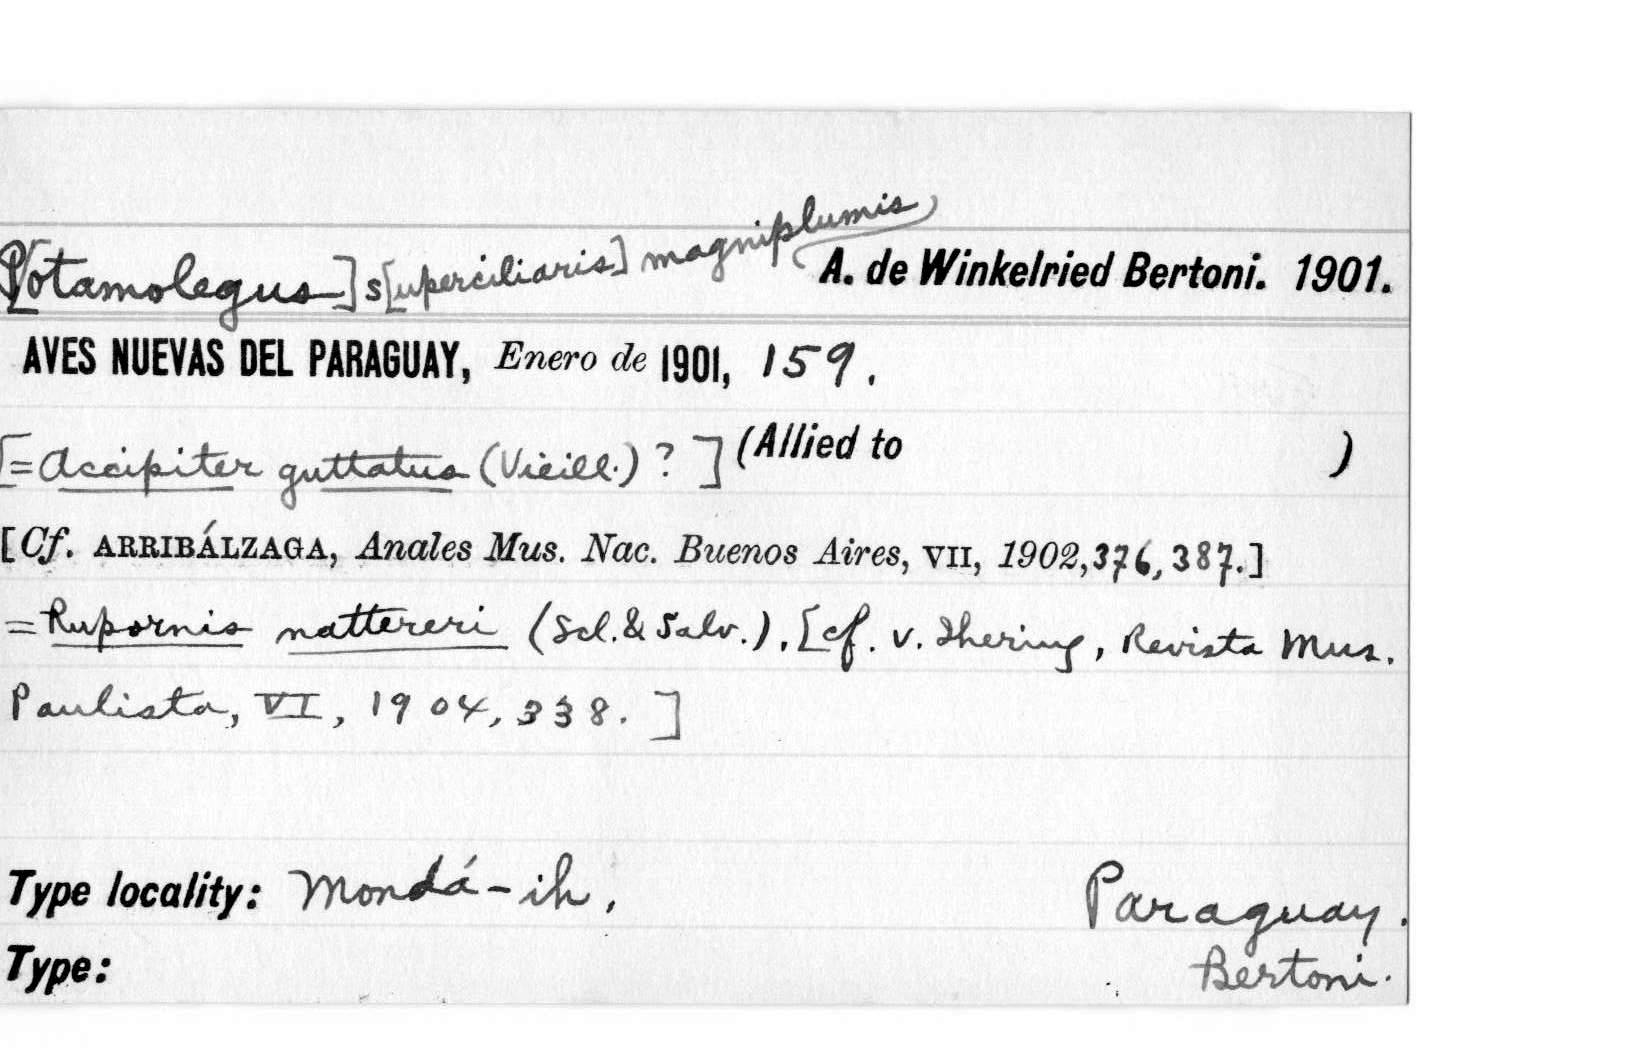 P[otamolegus] s[uperciliaris] magniplumis A. de Winkelried Bertoni. 1901.
AVES NUEVAS DEL PARAGUAY, Enero de 1901, 159.
[=Accipiter guttatus (Vieill.) ?] (Allied to )
[Cf. ARRIBÁLZAGA, Anales Mus. Nac. Buenos Aires, VII, 1902, 376, 387.]
=Rupornis nattereri (Scl. & Salv.). [cf. v. Ihering, Revista Mus.
Paulista, VI, 1904, 338.]
Type locality: Mondá-ih, Paraguay.
Type: Bertoni.